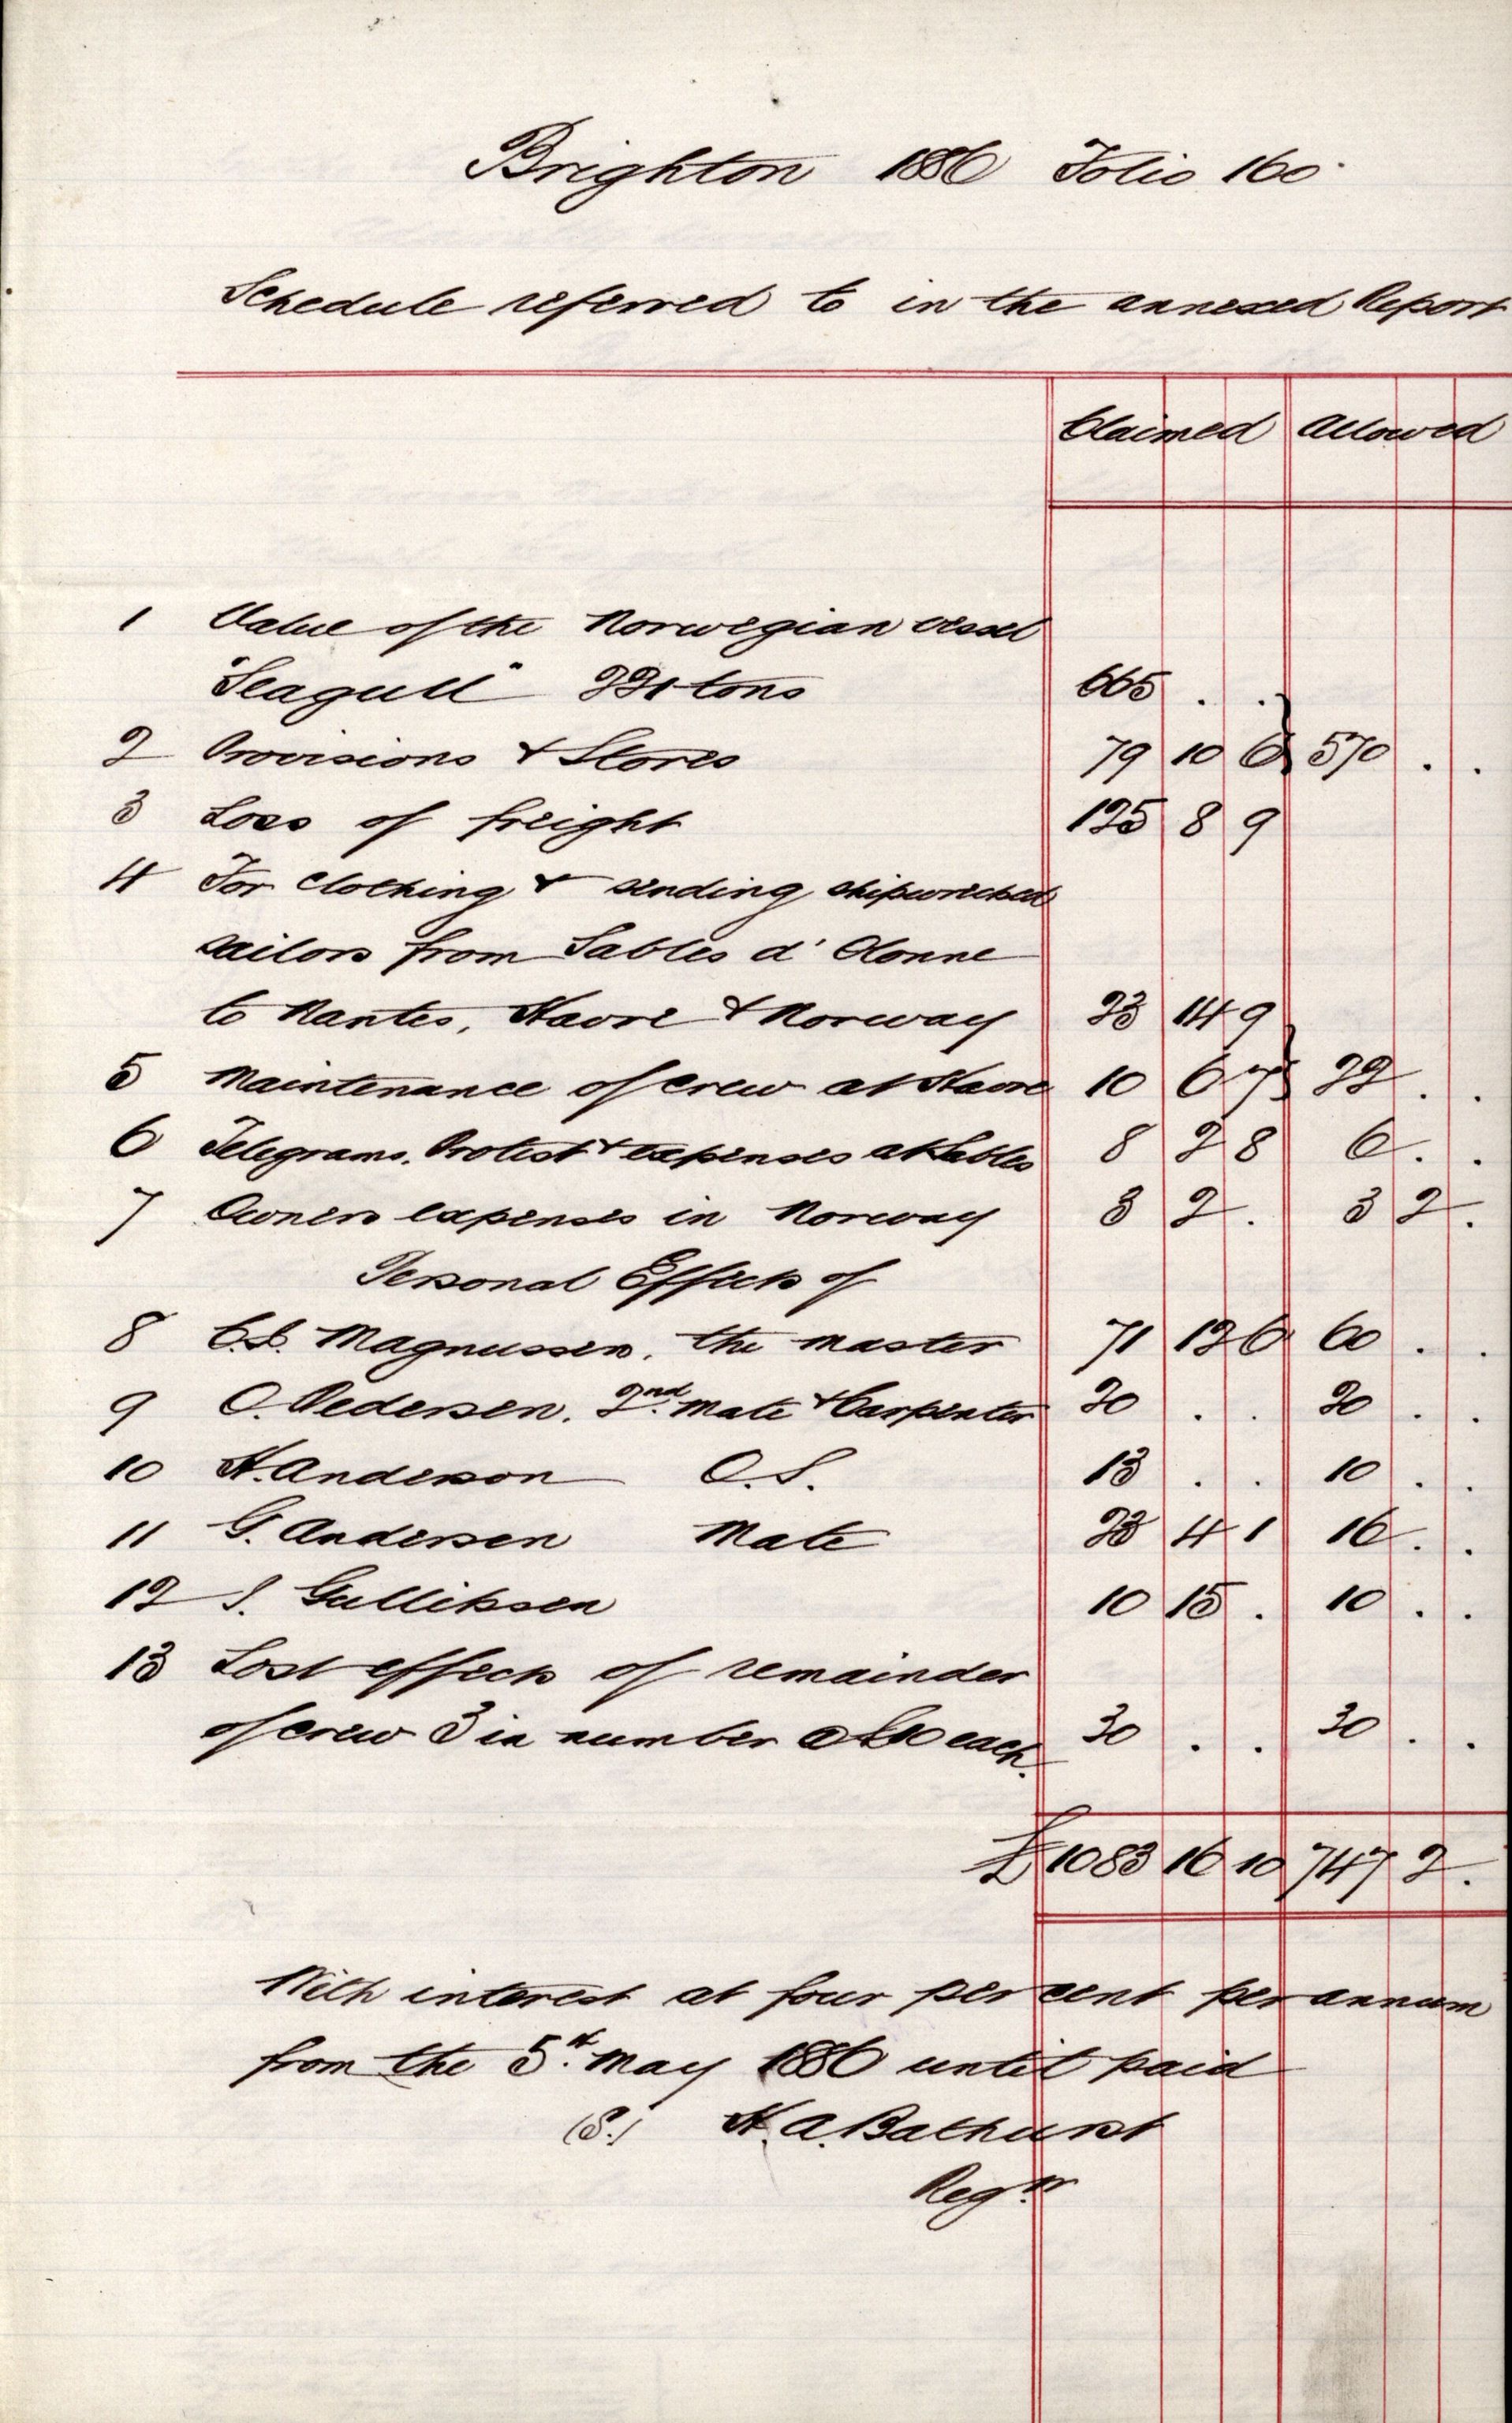 Brighton 1886 Folio 160
Schedule referred to in the annexed Report
Claimed Allowed
1 Value of the Norwegian vessel
"Seagull" 221 tons 665 . .
2 Provisions & Stores 79 10 6 570 . .
3 Loss of freight 125 8 9
4 For clothing & sending shipwrecked
sailors from Sables d'Olonne
to Nantes, Havre & Norway 23 14 9
5 Maintenance of crew at Havre 10 6 7 22 . .
6 Telegrams, Protest & expenses at Sables 8 2 8 6 . .
7 Owners expenses in Norway 3 2 . 3 2 .
Personal Effects of
8 C.L. Magnussen, the master 71 12 6 60 . .
9 O. Pedersen, 2nd. mate & Carpenter 20 . . 20 . .
10 H. Anderson O.S. 13 . . 10 . .
11 G. Andersen Mate 23 4 1 16 . .
12 S. Gulliksen 10 15 . 10 . .
13 Lost effects of remainder
of crew 3 in number @ £10 each. 30 . . 30 . .
£1083 16 10 747 2 .
With interest at four per cent per annum
from the 5th. May 1886 until paid
(S.) H.A. Bathurst
Regr.